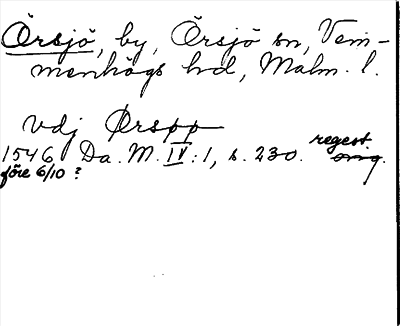 Örsjö, by, Örsjö sn, Vem-
menhögs hd, Malm. l.
vdj Ørspp
1546 Da. M. IV:1, s. 230. regest. orig.
före 6/10 ?